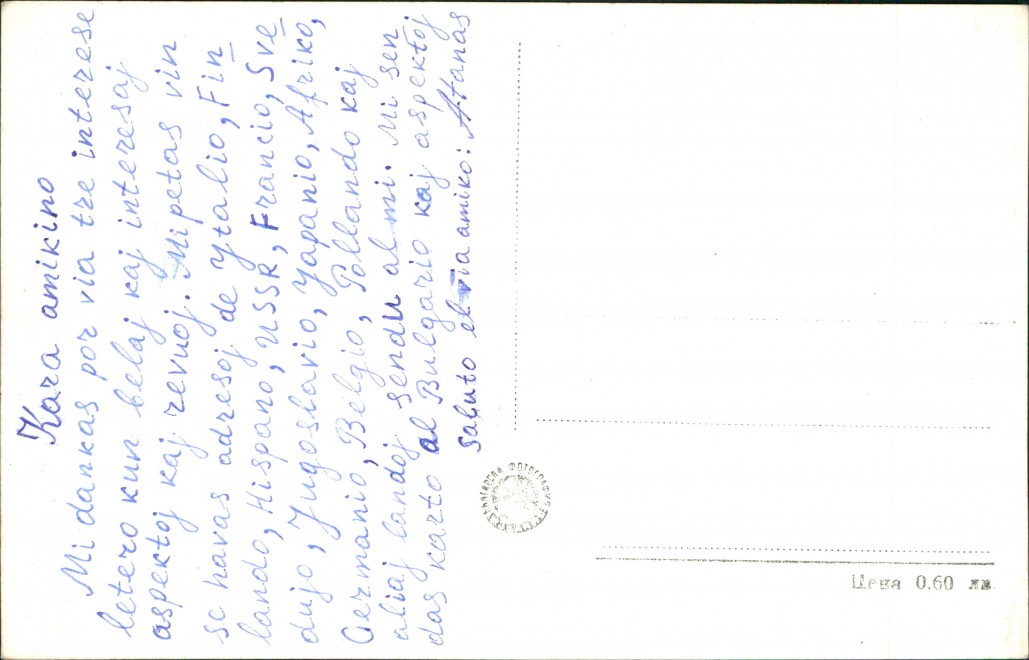 Kara amikino
Mi dankas por via tre interese
letero kun belaj kaj interesaj
aspektoj kaj revuoj. Mi petas vin
se havas adresoj de Ytalio, Fin
lando, Hispano, USSR, Francio, Sve
dujo, Jugoslavio, Yapanio, Afriko,
Germanio, Belgio, Pollando kaj
aliaj landoj sendu al mi. Mi sen
das karto al Bulgario kaj aspektoj
Saluto el via amiko: Atanas
БЪЛГАРСКА ФОТОГРАФИЯ
Цена 0.60 лв